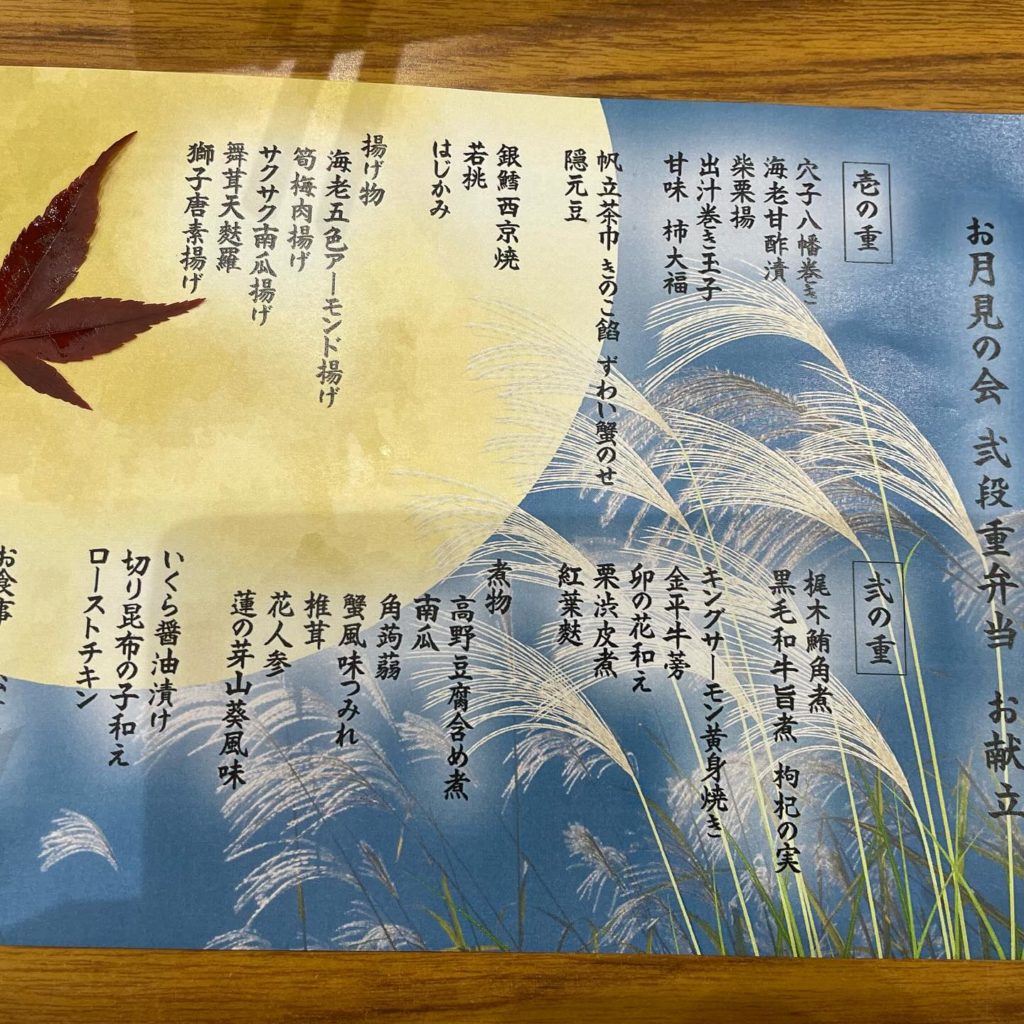 お月見の会 弐段重弁当 お献立
壱の重
穴子八幡巻き
海老甘酢漬
柴栗揚
出汁巻き玉子
甘味 柿大福
帆立茶巾 きのこ餡 ずわい蟹のせ
隠元豆
銀鱈西京焼
若桃
はじかみ
揚げ物
海老五色アーモンド揚げ
筍梅肉揚げ
サクサク南瓜揚げ
舞茸天麩羅
獅子唐素揚げ
弐の重
梶木鮪角煮
黒毛和牛旨煮 枸杞の実
キングサーモン黄身焼き
金平牛蒡
卯の花和え
栗渋皮煮
紅葉麩
煮物
高野豆腐含め煮
南瓜
角蒟蒻
蟹風味つみれ
椎茸
花人参
蓮の芽山葵風味
いくら醤油漬け
切り昆布の子和え
ローストチキン
お食事